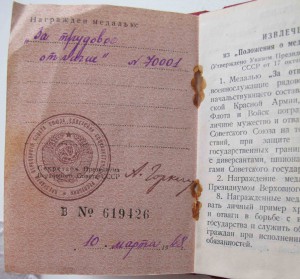 Награжден медалью
"За трудовое
отличие" N 70001
Секретарь Президиума
Верховного Совета СССР
А. Горкин
В № 619426
10 марта
ИЗВЛЕЧ
из „Положения о ме
(Утверждено Указом Президи
СССР от 17 октя
1. Медалью „За от
военнослужащие рядов
начальствующего состав
кой Красной Армии,
Флота и Войск погран
личные мужество и отваг
Советского Союза на те
ствий, при защите
государственных границ
с диверсантами, шпиона
гами Советского госуд
2. Награждение мед
Президиумом Верховног
8. Награжденные мед
вать личный пример хр
и отваги в борьбе с вр
государства и служить об
граждан при исполнении
обязанностей.